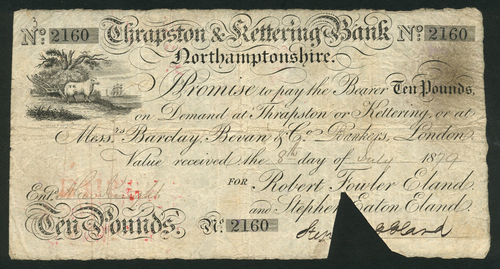 No. 2160 Thrapston & Kettering Bank No. 2160
Northamptonshire.
I Promise to pay the Bearer Ten Pounds,
on Demand at Thrapston or Kettering, or at
Messrs. Barclay, Bevan & Co. Bankers, London
Value received the 8th day of July 1879
FOR Robert Fowler Eland
Entd.
and Stephen Eaton Eland.
Ten Pounds. No. 2160
Eland